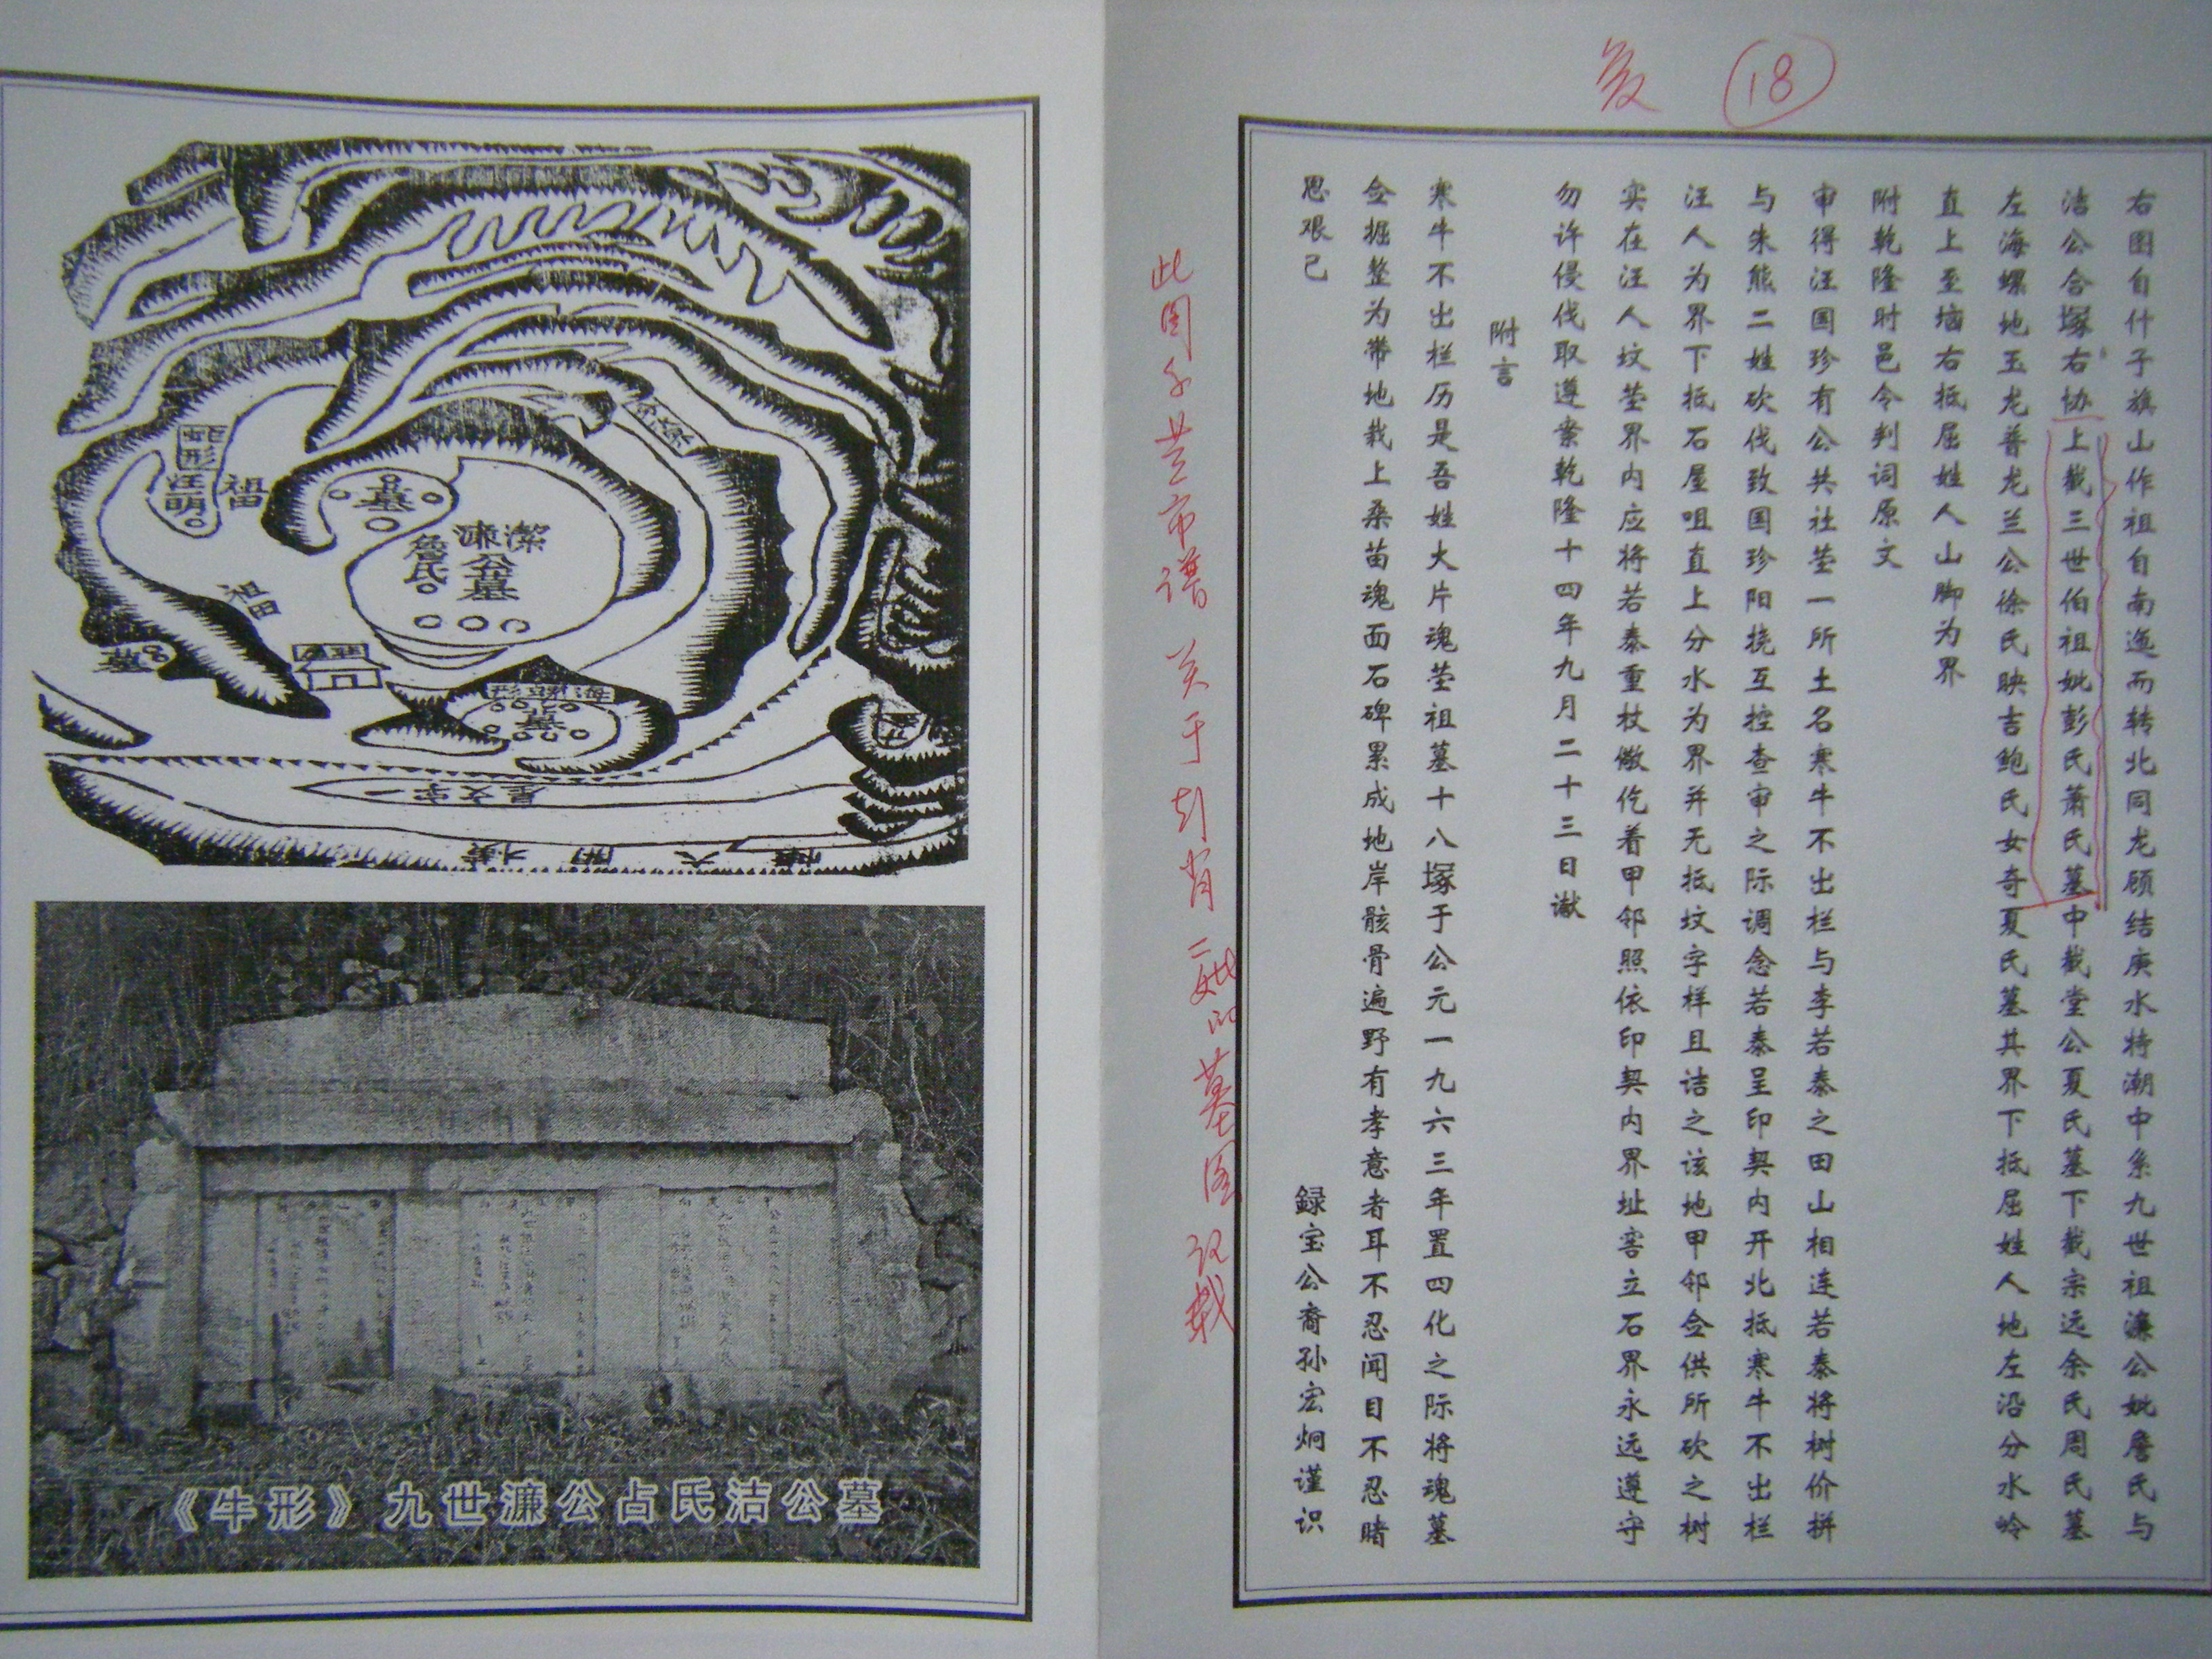 18
右图自什子旗山作祖自南迤而转北同龙顾结庚水特潮中系九世祖濂公妣詹氏与
洁公合塚右协上截三世伯祖妣彭氏萧氏墓中截堂公夏氏墓下截宗远余氏周氏墓
左海螺地玉龙普龙兰公徐氏映吉鲍氏女奇夏氏墓其界下抵屈姓人地左沿分水岭
直上至垴右抵屈姓人山脚为界
附乾隆时邑令判词原文
审得汪国珍有公共社茔一所土名寒牛不出栏与李若泰之田山相连若泰将树价拼
与朱熊二姓砍伐致国珍阳挠互控查审之际调念若泰呈印契内开北抵寒牛不出栏
汪人为界下抵石屋咀直上分水为界并无抵坟字样且诘之该地甲邻佥供所砍之树
实在汪人坟茔界内应将若泰重杖儆仡着甲邻照依印契内界址窖立石界永远遵守
勿许侵伐取遵案乾隆十四年九月二十三日谳
附言
寒牛不出栏历是吾姓大片魂茔祖墓十八塚于公元一九六三年置四化之际将魂墓
佥掘整为带地栽上桑苗魂面石碑累成地岸骸骨遍野有孝意者耳不忍闻目不忍睹
思艰己
録宝公裔孙宏炯谨识
此图系芒市谱关于彭肖二妣的墓图记载
蛇形
汪明
祖田
墓
濂潔公墓
詹氏
祖田
海螺形
墓
一字文星
《牛形》九世濂公占氏洁公墓